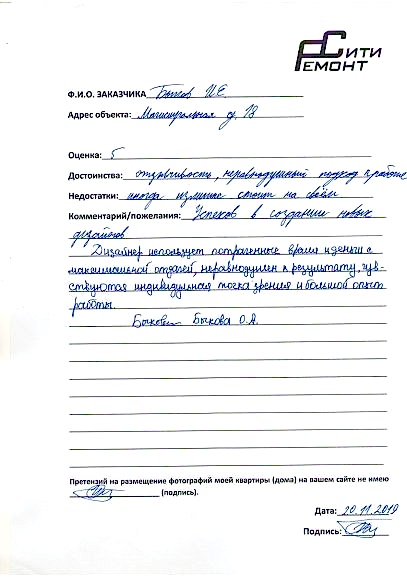 СИТИ
РЕМОНТ
Ф.И.О. ЗАКАЗЧИКА Быков И.Е.
Адрес объекта: Магистральная д. 18
Оценка: 5
Достоинства: отзывчивость, неравнодушный подход к работе
Недостатки: иногда излишне стоит на своём
Комментарий/пожелания: Успехов в создании новых
дизайнов
Дизайнер использует потраченные время и деньги с
максимальной отдачей, неравнодушен к результату, чув-
ствуются индивидуальная точка зрения и большой опыт
работы.
Быкова О.А.
Претензий на размещение фотографий моей квартиры (дома) на вашем сайте не имею
(подпись).
Дата: 20.11.2019
Подпись: